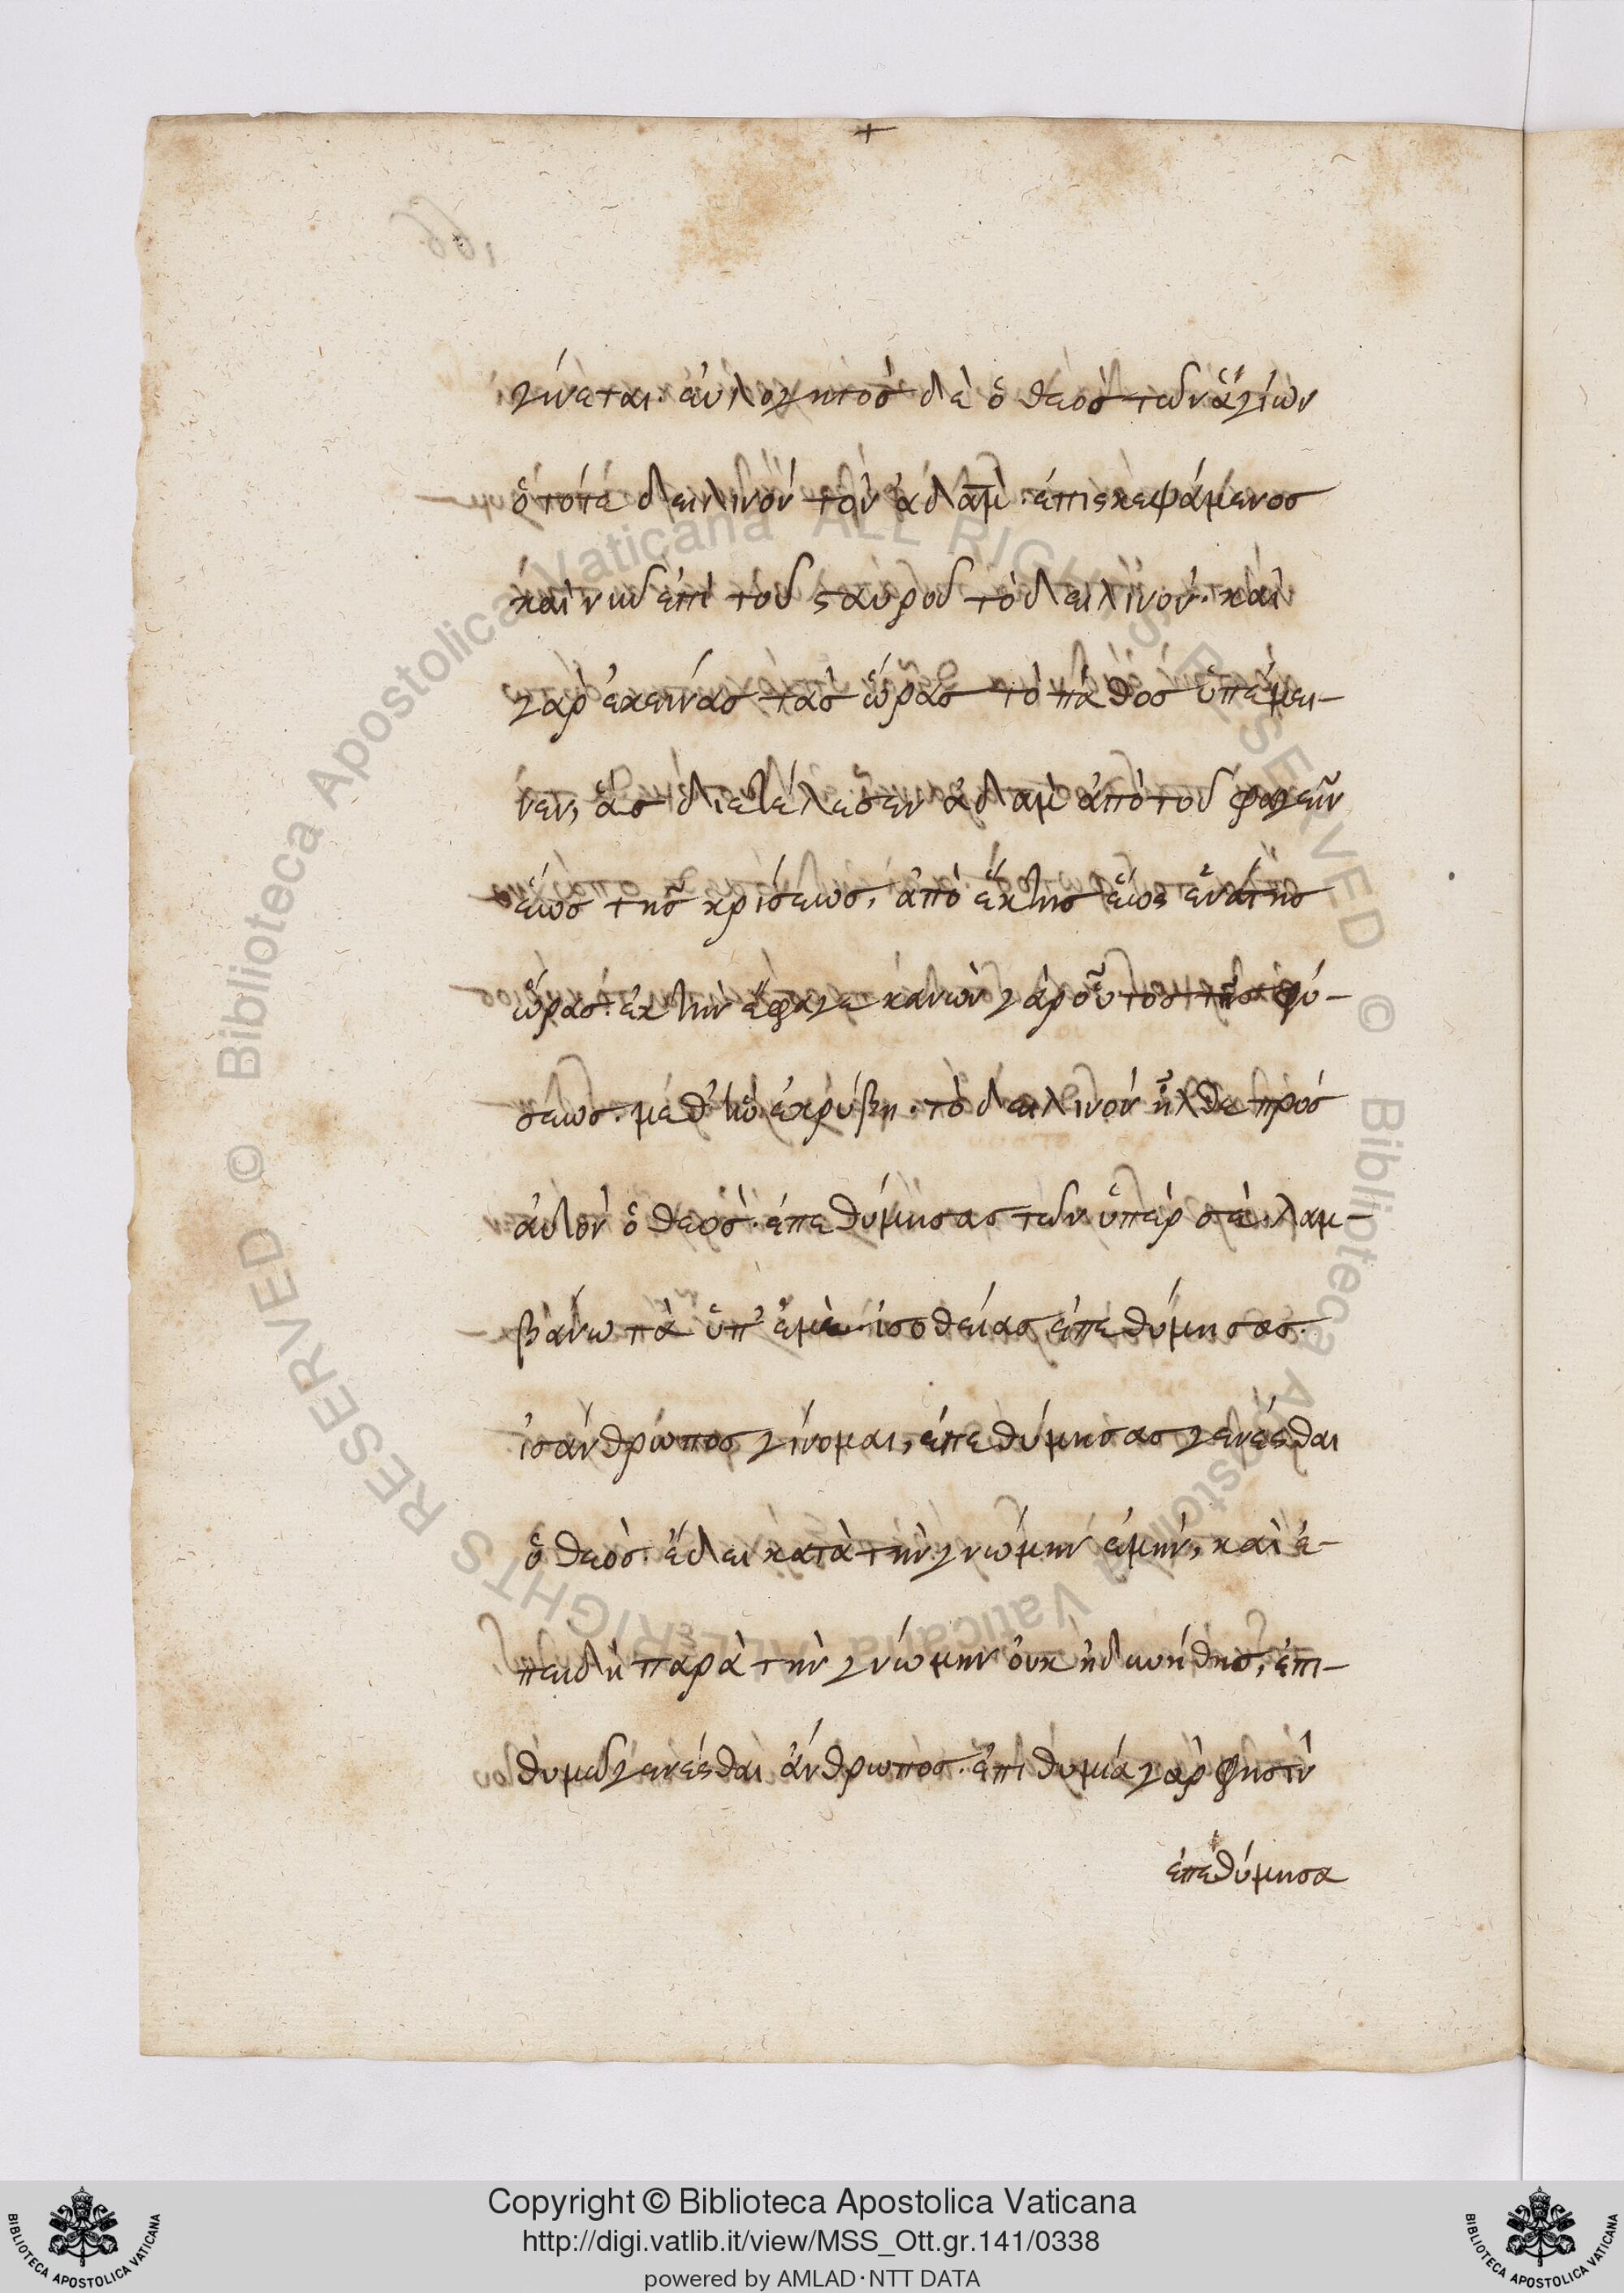 +
γίνεται. εὐλογητὸσ δὲ ὁ θεὸσ τῶν ἁγίων
ὁ τότε δειλινὸν τὸν ἀδὰμ. ἐπισκεψάμενοσ
καὶ νῦν ἐπὶ τοῦ σταυροῦ τὸ δειλινόν. καὶ
γὰρ ἐκείνασ τὰσ ὥρασ τὸ πάθοσ ὑπέμει-
νεν, ἃσ διετέλεσεν ἀδὰμ ἀπὸ τοῦ φαγεῖν
ἕωσ τῆσ κρίσεωσ, ἀπὸ ἕκτησ ἕως ἐνάτησ
ὥρασ. ἕκτην ἔφαγε κανὼν γὰρ οὗτοσ τῆσ φύ-
σεωσ. μεθ' ἣν ἐκρύβη. τὸ δειλινὸν ἦλθε πρὸσ
αὐτὸν ὁ θεὸσ. ἐπεθύμησασ τῶν ὑπὲρ σὲ. λαμ-
βάνω τὰ ὑπ' ἐμὲ. ἰσοθεΐασ ἐπεθύμησασ.
ἰσάνθρωποσ γίνομαι, ἐπεθύμησασ γενέσθαι
ὁ θεὸσ. ἔδει κατὰ τὴν γνώμην ἐμὴν, καὶ ἐ-
πειδὴ παρὰ τὴν γνώμην οὐκ ἠδυνήθησ, ἐπι-
θυμῶ γενέσθαι ἄνθρωποσ. ἐπιθυμία γὰρ φησὶν
ἐπεθύμησα
Copyright © Biblioteca Apostolica Vaticana
http://digi.vatlib.it/view/MSS_Ott.gr.141/0338
powered by AMLAD·NTT DATA
BIBLIOTECA APOSTOLICA VATICANA
BIBLIOTECA APOSTOLICA VATICANA
© Biblioteca Apostolica Vaticana ALL RIGHTS RESERVED © Biblioteca Apostolica Vaticana ALL RIGHTS RESERVED